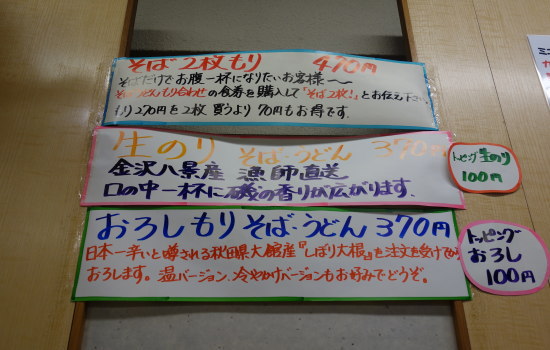 そば2枚もり 470円
そばだけでお腹一杯になりたいお客様へ〜
もり合わせの食券を購入して「そば2枚!」とお伝え下さい
もり270円を2枚買うより70円もお得です。
生のり そば・うどん 370円
金沢八景産 漁師直送
口の中一杯に磯の香りが広がります。
トッピング生のり
100円
おろしもりそば・うどん 370円
日本一辛いと噂される秋田県大館産『しぼり大根』を注文を受けてから
おろします。温バージョン、冷やかけバージョンもお好みでどうぞ。
トッピング
おろし
100円
ミニ